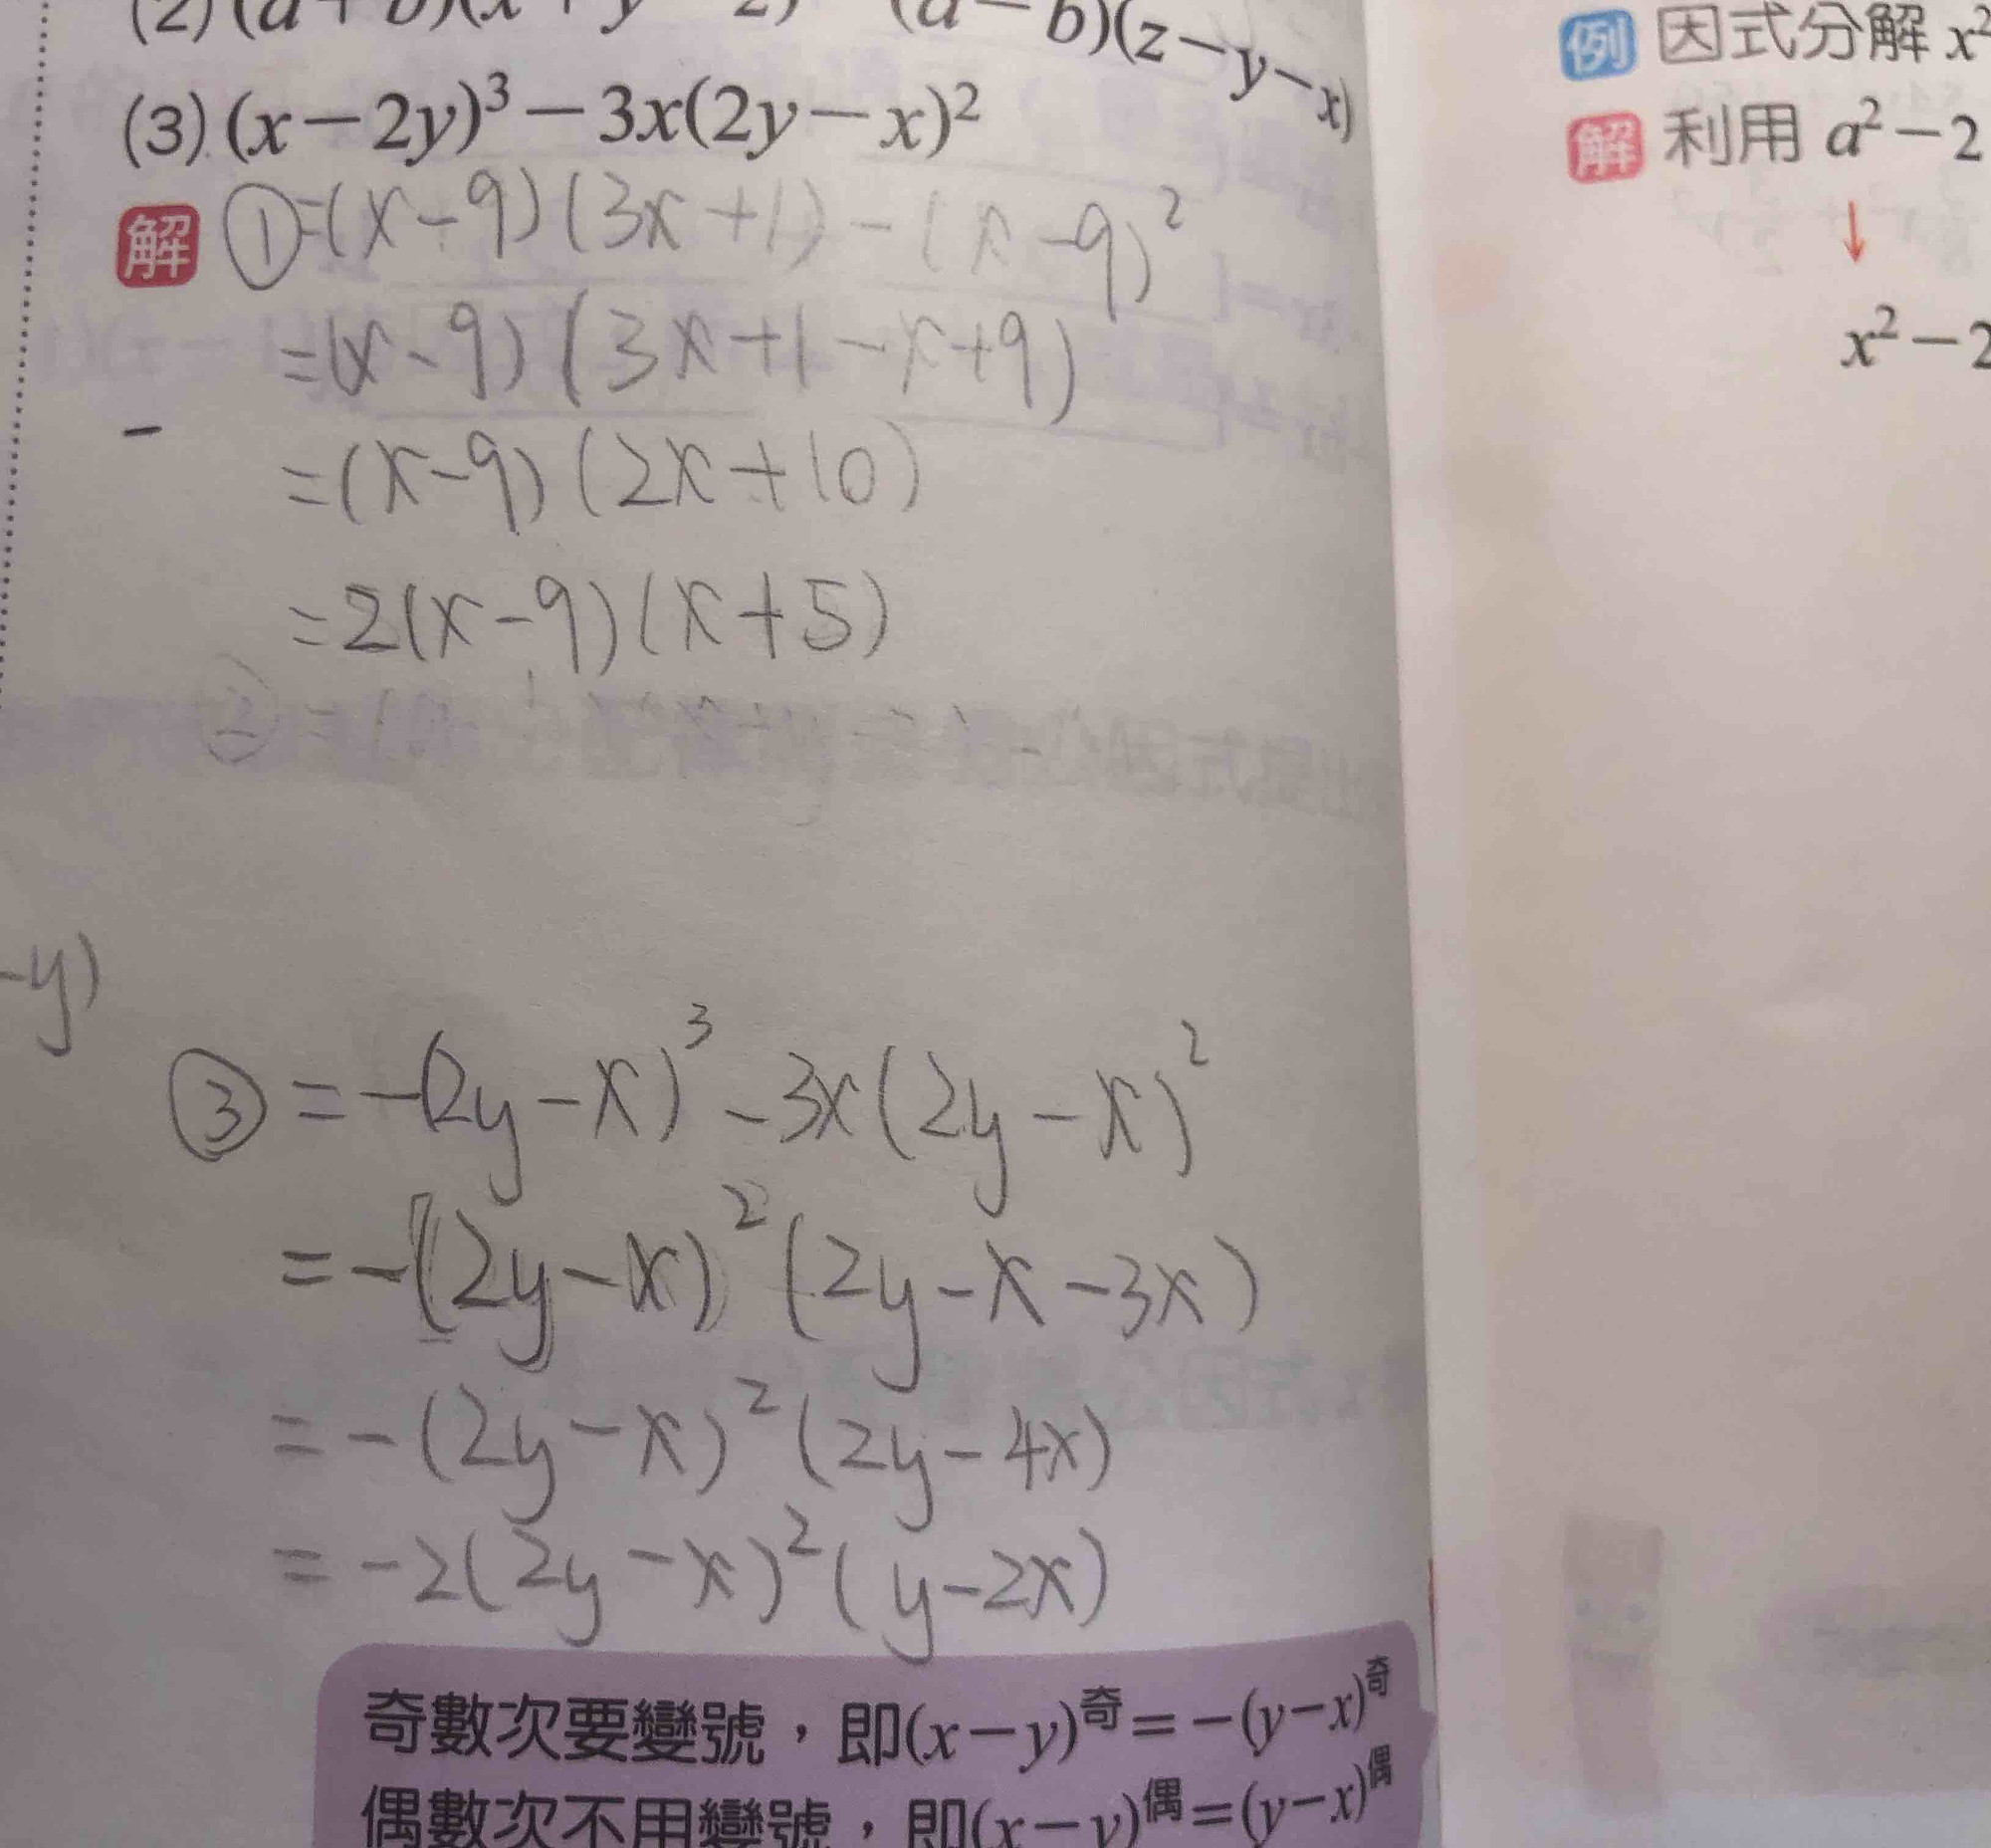 (2)(a+b)(x+y-z)-(a-b)(z-y-x)
(3)(x-2y)³-3x(2y-x)²
解 ①=(x-9)(3x+1)-(x-9)²
=(x-9)(3x+1-x+9)
=(x-9)(2x+10)
=2(x-9)(x+5)
-y)
③=-(2y-x)³-3x(2y-x)²
=-(2y-x)²(2y-x-3x)
=-(2y-x)²(2y-4x)
=-2(2y-x)²(y-2x)
奇數次要變號，即(x-y)奇=-(y-x)奇
偶數次不用變號，即(x-y)偶=(y-x)偶
例 因式分解 x²
解 利用 a²-2
x²-2